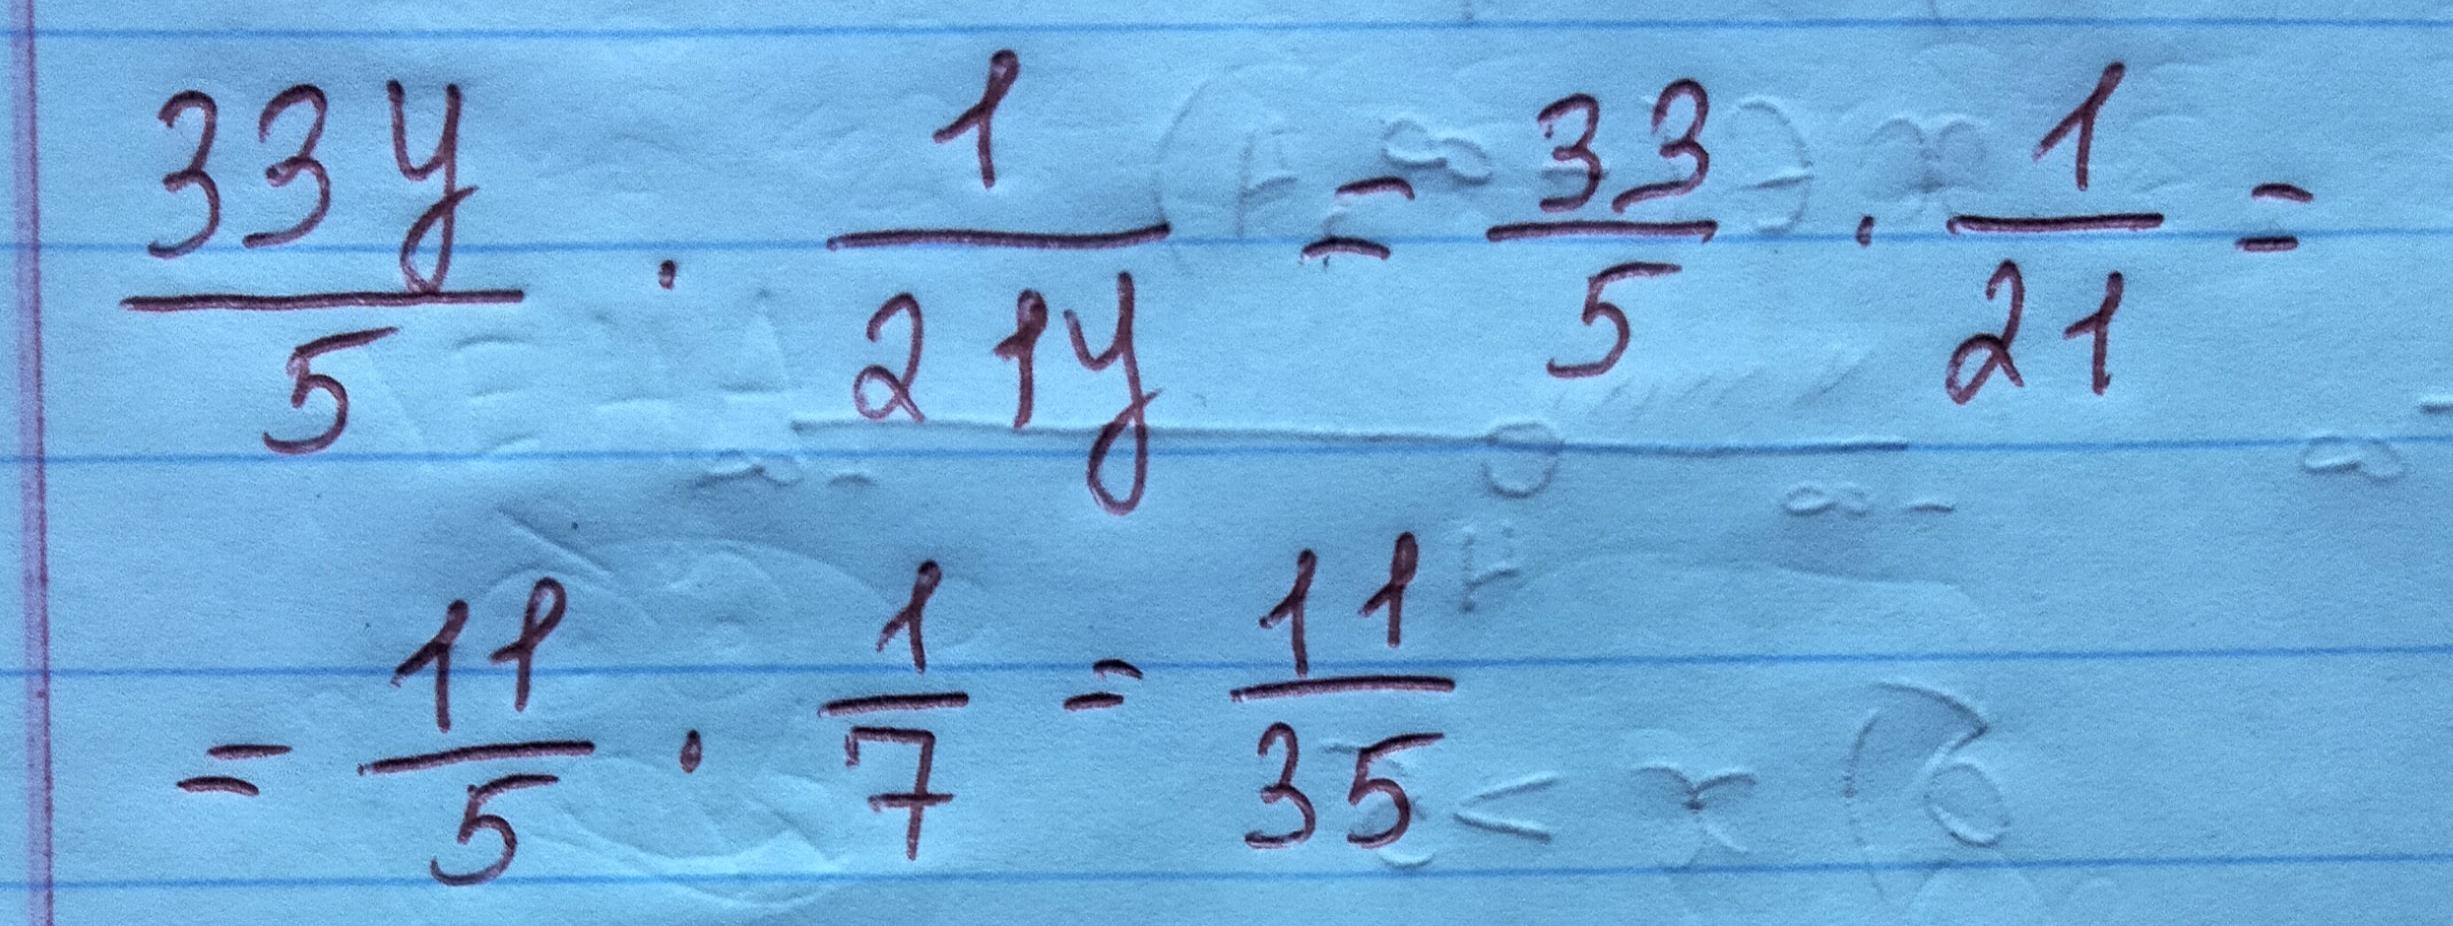 33y/5 · 1/21y = 33/5 · 1/21 =
= 11/5 · 1/7 = 11/35